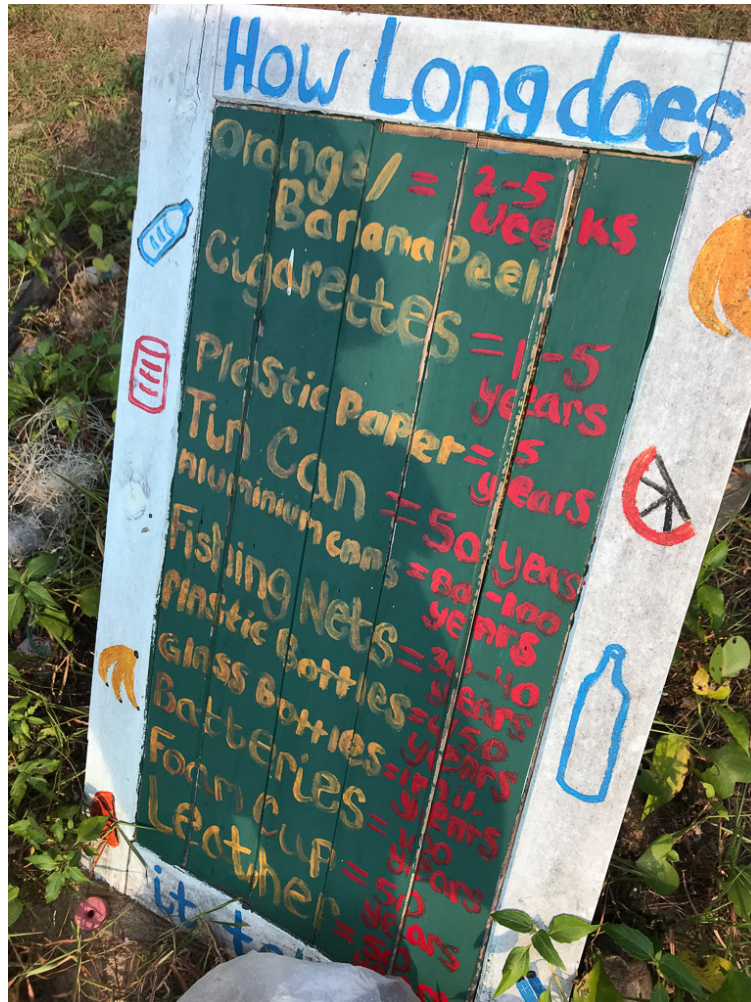 How Long does
Orange/ = 2-5
Banana Peel weeks
Cigarettes = 1-5
years
Plastic Paper = 5
years
Tin Can = 50 years
Aluminium cans = 80-100
years
Fishing Nets = 30-40
years
Plastic Bottles = 450
years
Glass Bottles = 1 mil.
years
Batteries = 100
years
Foam Cup = 50
years
Leather =
it